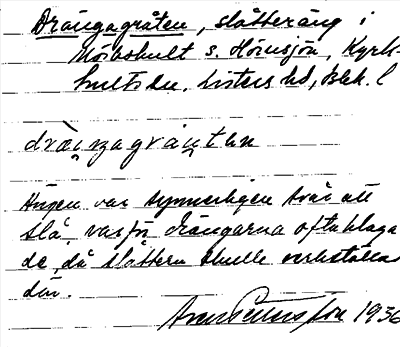 Drängagråten, slåtteräng i
Mörbshult s. Hörnsjön, Kyrk-
hults sn, Listers hd, Blek. l
drängagråten
Ängen var synnerligen svår att
slå, varför drängarna ofta klaga
de, då slåttern skulle verkställas
där.
1936